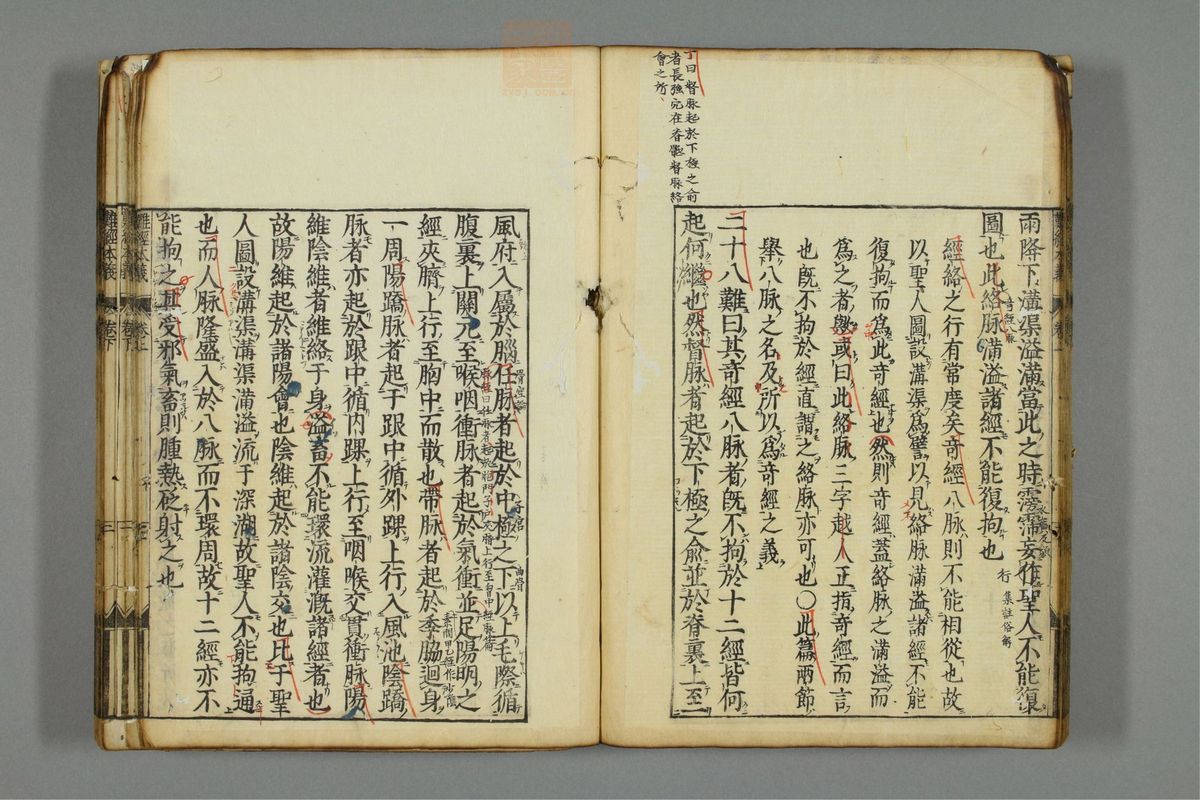 丁曰督脉起於下極之俞
者長強穴在脊骶督脉絡
會之所
雨降下溝渠溢滿當此之時霶霈妄作聖人不能復
圖也此絡脉滿溢諸經不能復拘也
經絡之行有常度矣奇經八脉則不能相從也故
以聖人圖設溝渠爲譬以見絡脉滿溢諸經不能
復拘而爲此奇經也然則奇經蓋絡脉之滿溢而
爲之者歟或曰此絡脉三字越人正指奇經而言
也旣不拘於經直謂之絡脉亦可也○此篇兩節
舉八脉之名及所以爲奇經之義
二十八難曰其奇經八脉者旣不拘於十二經皆何
起何繼也然督脉者起於下極之俞並於脊裏上至
風府入屬於腦任脉者起於中極之下以上毛際循
腹裏上關元至喉咽衝脉者起於氣衝並足陽明之
經夾臍上行至胸中而散也帶脉者起於季脇迴身
一周陽蹻脉者起于跟中循外踝上行入風池陰蹻
脉者亦起於跟中循内踝上行至咽喉交貫衝脉陽
維陰維者維絡于身溢畜不能環流灌溉諸經者也
故陽維起於諸陽會也陰維起於諸陰交也比于聖
人圖設溝渠溝渠滿溢流于深湖故聖人不能拘通
也而人脉隆盛入於八脉而不環周故十二經亦不
能拘之其受邪氣畜則腫熱砭射之也
難經本義
卷下